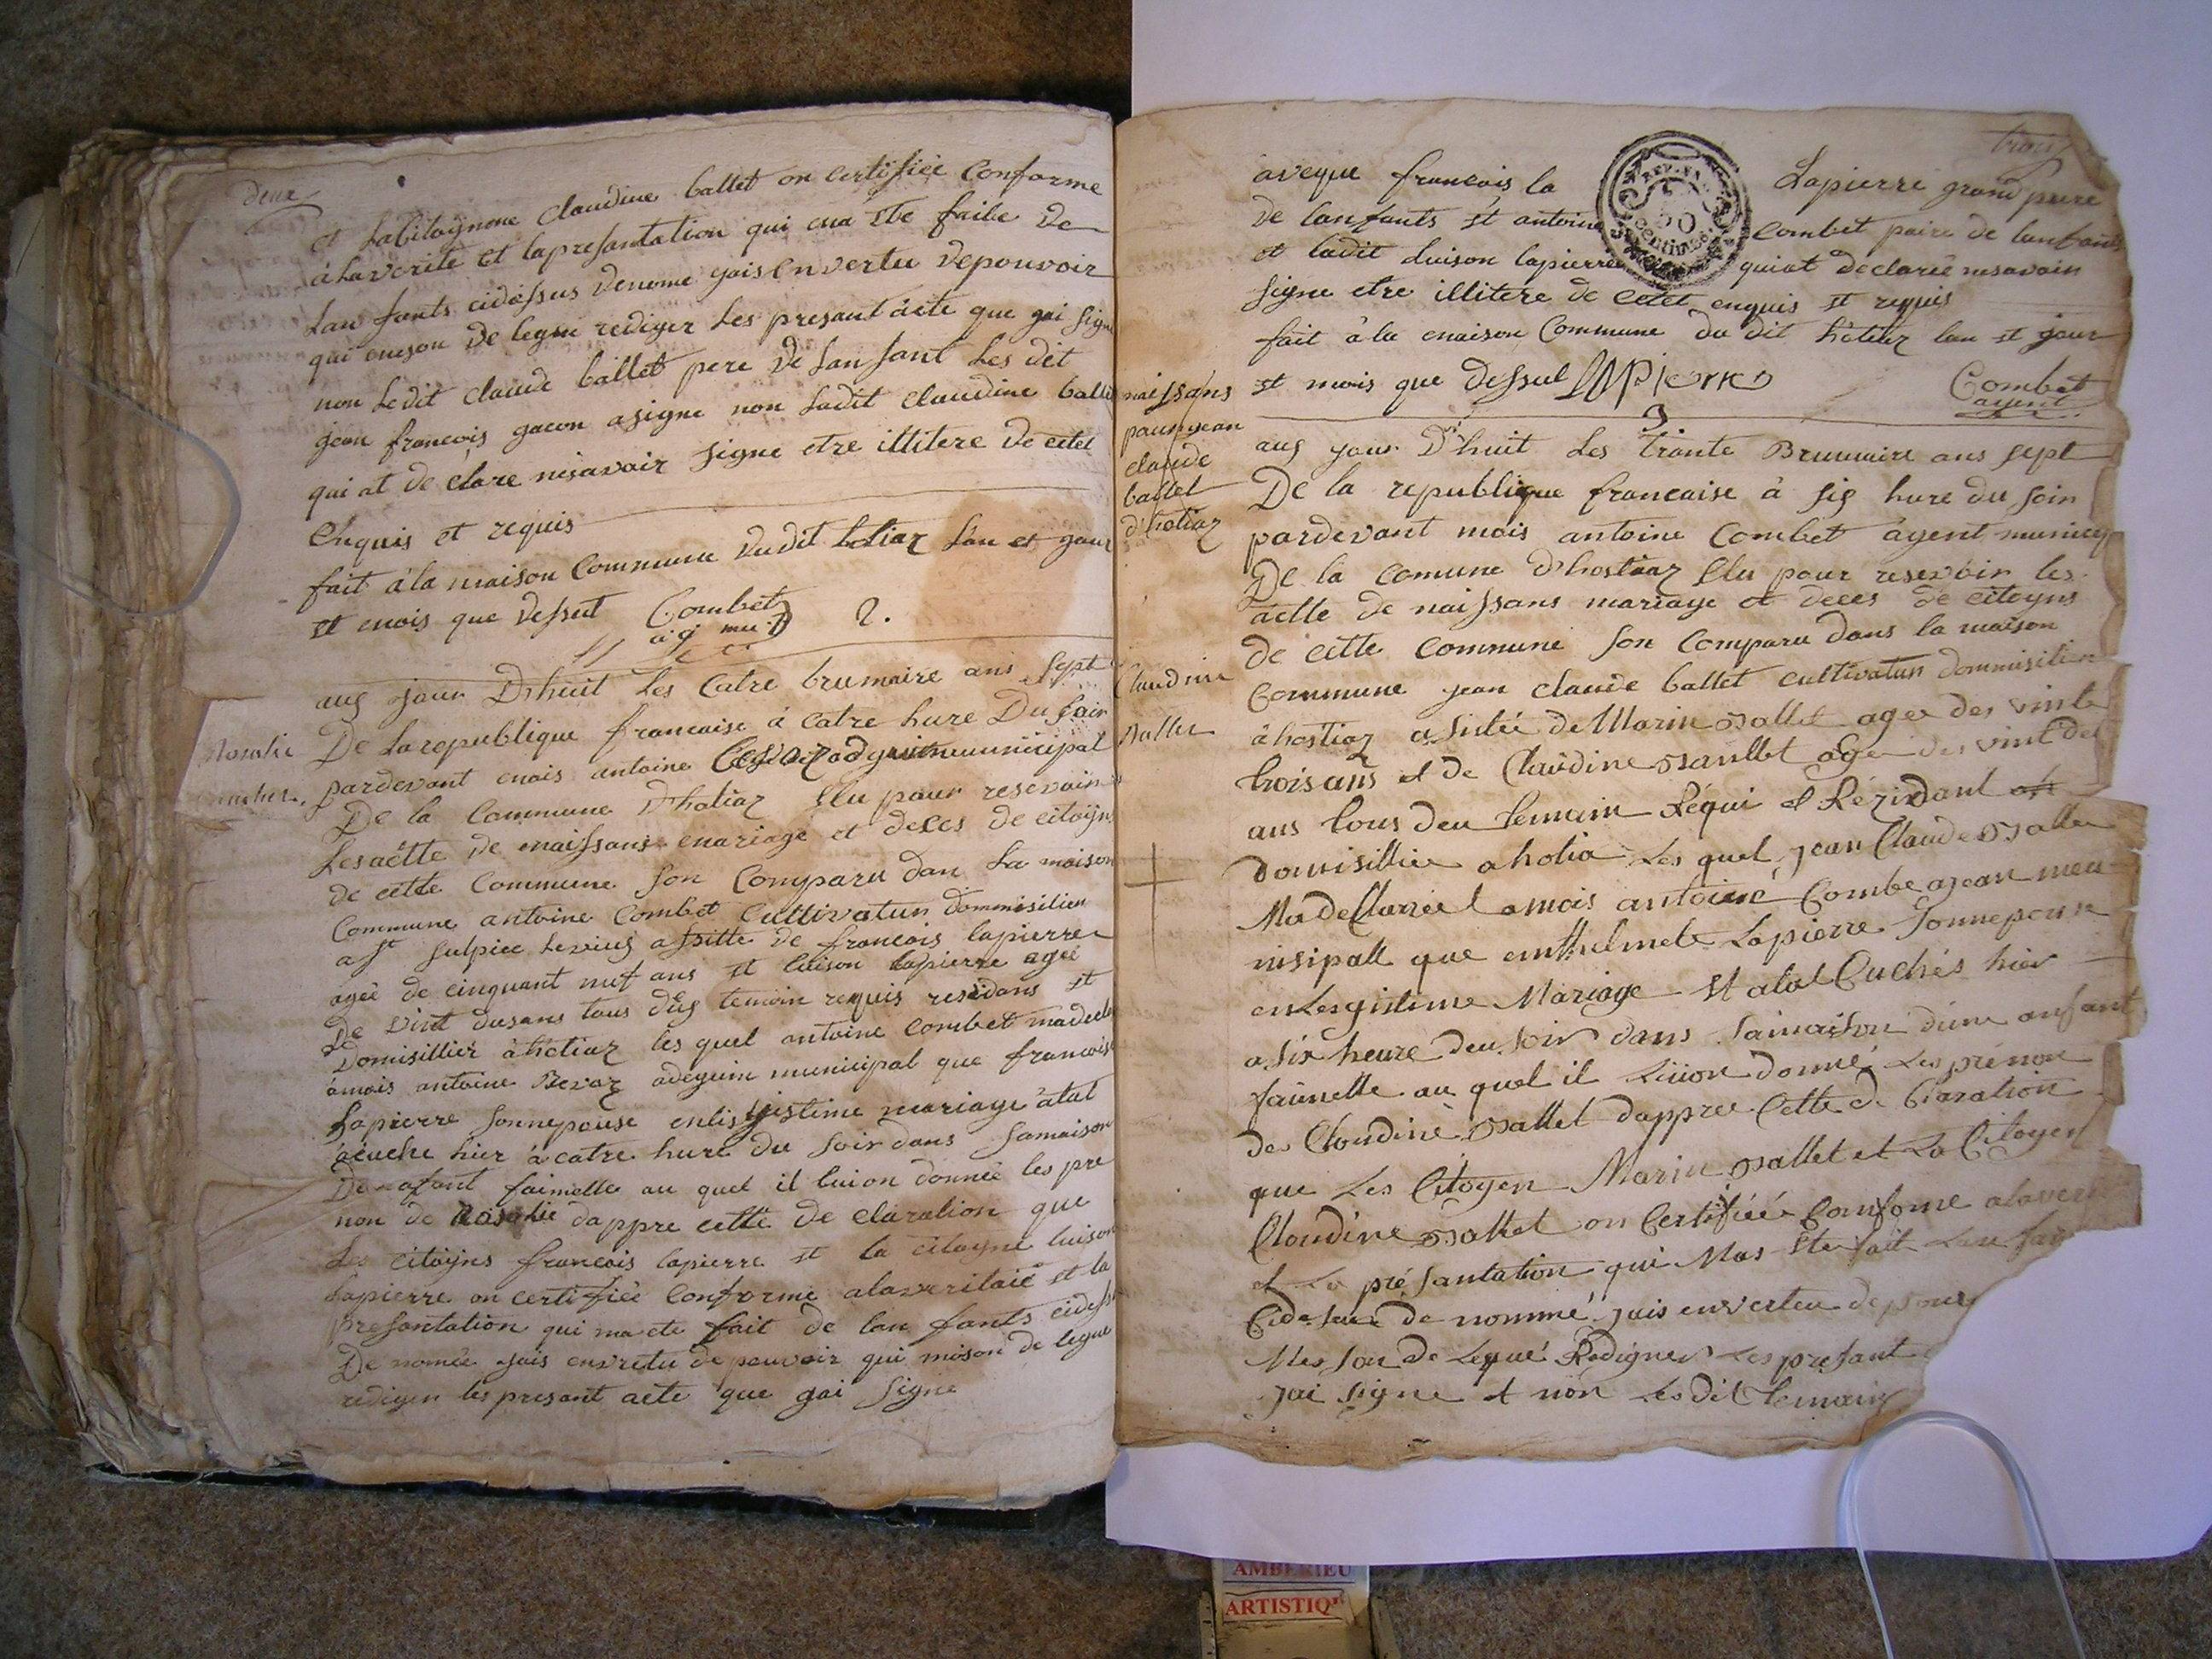 deux
et labitoynne claudine ballet on certifiée Conforme
à la verite et la presantation qui ma ete faite de
lan fants cidessus denome jais en vertu de pouvoir
qui meson de legue rediger les presant acte que jai signe
non ledit claude ballet pere de lanfant les dit
jean francois gacon a signe non ladit claudine ballet
qui at de clare nesavoir signe etre illitere de cetet
enquis et requis
fait à la maison Commune du dit hotiaz lan et jour
et mois que dessut Combet
ag mu
2.
Rosalie
Combet
auj jour D'huit les catre brumaire ans sept
De la republique francaise à catre hure Du soir
pardevant mois antoine municipal
De la Commune D'hotiaz Elu pour resevoir
les aette de naissans mariage et deces de citoyns
de cette Commune son Comparu dan la maison
Commune antoine Combet Cultivatur dommisilier
a st sulpice levieux assitte de francois lapierre
agée de cinquant nuf ans et luison lapierre agée
de vint dusans tous deus temoin requis residans et
Domisillier à hotiaz les quel antoine combet madecla
à mois antoine Bevaz adeguin municipal que francoise
Lapierre sonnepouse enlisgistime mariage àtat
àcuche hier à catre hure du soir dans samaison
De anfant faimelle au quel il luion donnée les pre
non de Rosalie dappre cette de claration que
Les citoyns francois lapierre et la citoyne luison
Lapierre on certifiée Conforme alaveritaie et la
presantation qui ma ete fait de lan fants cidessu
De nomée jais envretu de pouvoir qui mison de legue
redigen les presant acte que jai signe
trois
aveque francois la Lapierre grand peere
de lanfants et antoine combet paire de lanfants
et ladit luison lapierre quiat declarée nesavoir
signe etre illitere de cetet enquis et requis
fait à la maison Commune du dit hotiaz lan et jour
et mois que dessut Lapierre Combet
agent
REP. FRA.
50
centimes
3
naissans
pour jean
claude
ballet
d'hotiaz
Claudine
Ballet
auj jour D'huit les trante Brumaire ans sept
De la republique francaise à sis hure du soir
pardevant mois antoine Combet agent municip
De la comune D'hostiaz Elu pour resevoir les
aette de naissans mariage et deces de citoyns
de cette commune son Comparu dans la maison
Commune jean claude ballet cultivatur dommisilier
à hostiaz asistée de Marin Ballet agee des vinte
trois ans et de Claudine Ballet agee des vint deu
ans tous deu temain Réqui et Rézindant
domisillie a hotia Les quel jean Claude Ballet
Ma deClarrée a mois antoine Combe ajean meu
nisipall que emthelmete Lapierre Sonnepouse
en Lesgistime Mariage et atat Cuchés hier
a six heure deu soir dans samaison dune anfant
faimelle au quel il Luion donné Les prénon
de Claudine Ballet dapprée Cette de Claration
que Les Citoyen Marin Ballet et La Citoyen
Claudine Ballet on Certifiée Confome alaveri
et La présantation qui Mas ete fait Lan fan
Cidesue de nommé jais enverteu de pouv
Mes son de Legué Rediger Les presant
jai signe et non Les dit temain
AMBERIEU
ARTISTIQ